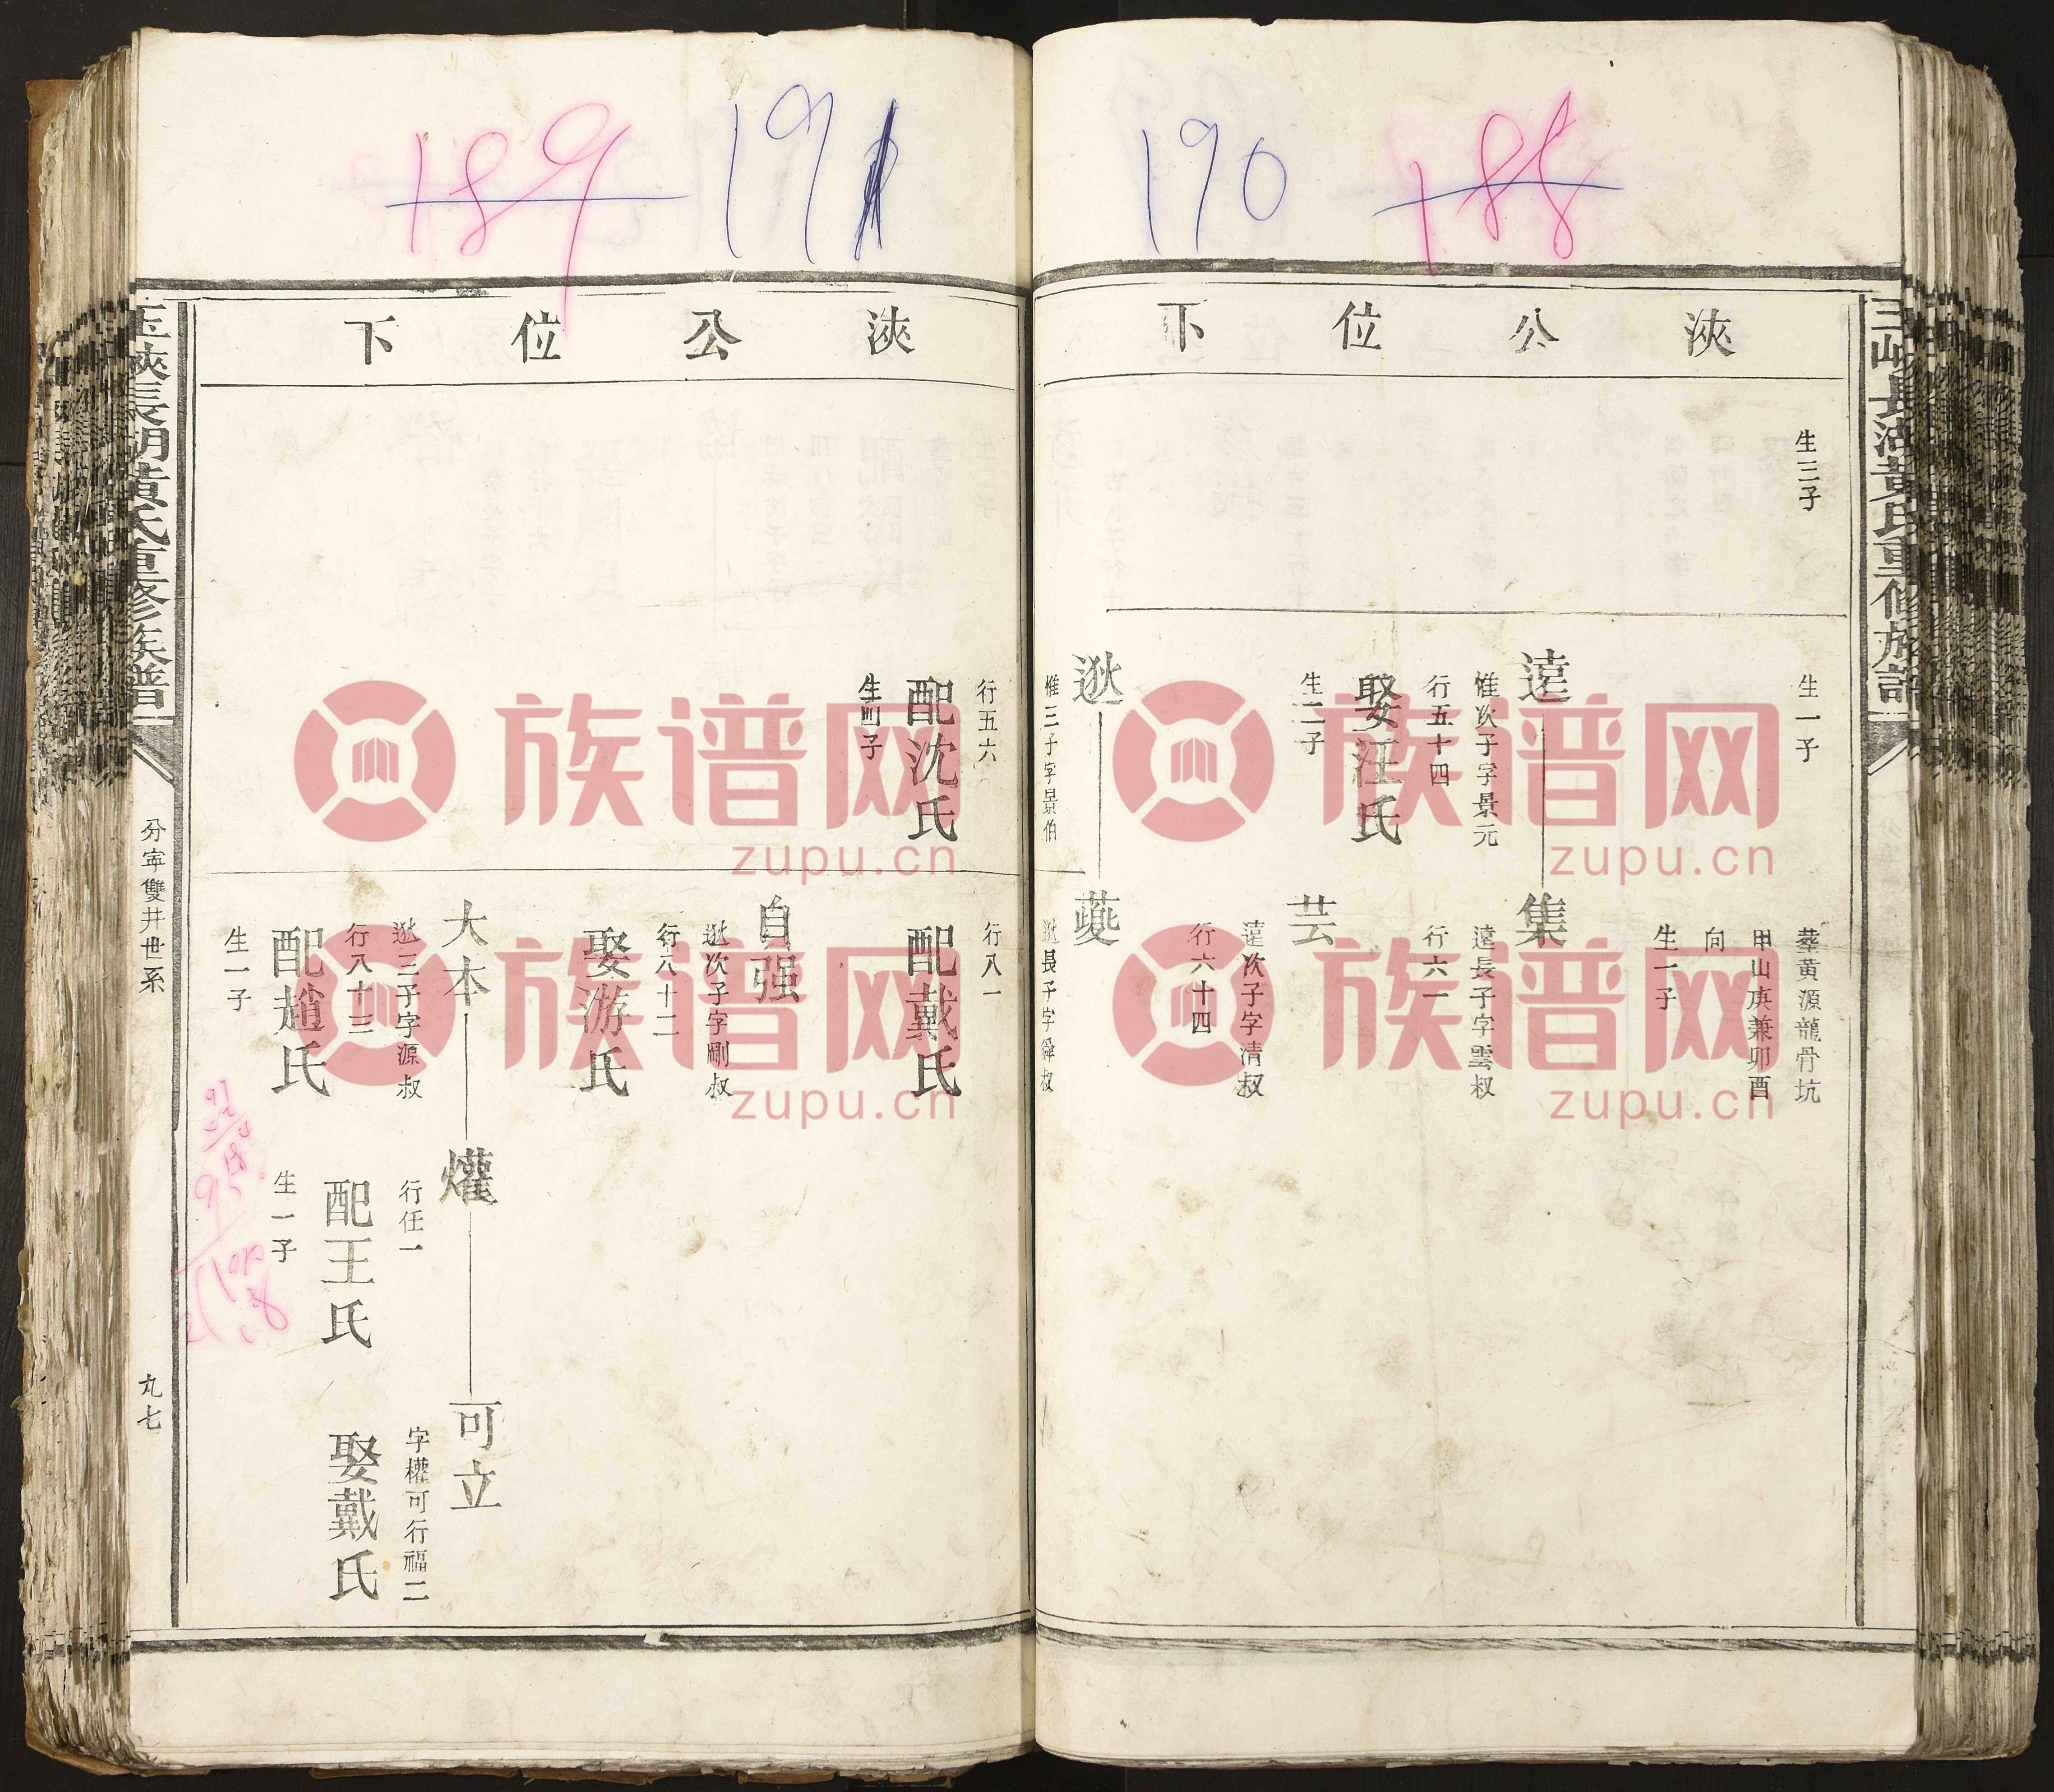 190
188
浹公位下
生三子
生一子
葬黄源龍骨坑
甲山庚兼卯酉
向
生一子
遠
惟次子字景元
行五十四
娶汪氏
生二子
集
遠長子字雲叔
行六一
芸
遠次子字清叔
行六十四
逖
惟三子字景伯
夔
逖長子字舜叔
189
191
浹公位下
行五六
配沈氏
行八一
配戴氏
自强
逖次子字剛叔
行八十二
娶游氏
大本
逖三子字源叔
行八十三
配趙氏
生一子
爟
行任一
配王氏
生一子
可立
字權可行福二
娶戴氏
玉峽長湖黄氏重修族譜
分寧雙井世系
九七
族谱网
zupu.cn
族谱网
zupu.cn
族谱网
zupu.cn
族谱网
zupu.cn